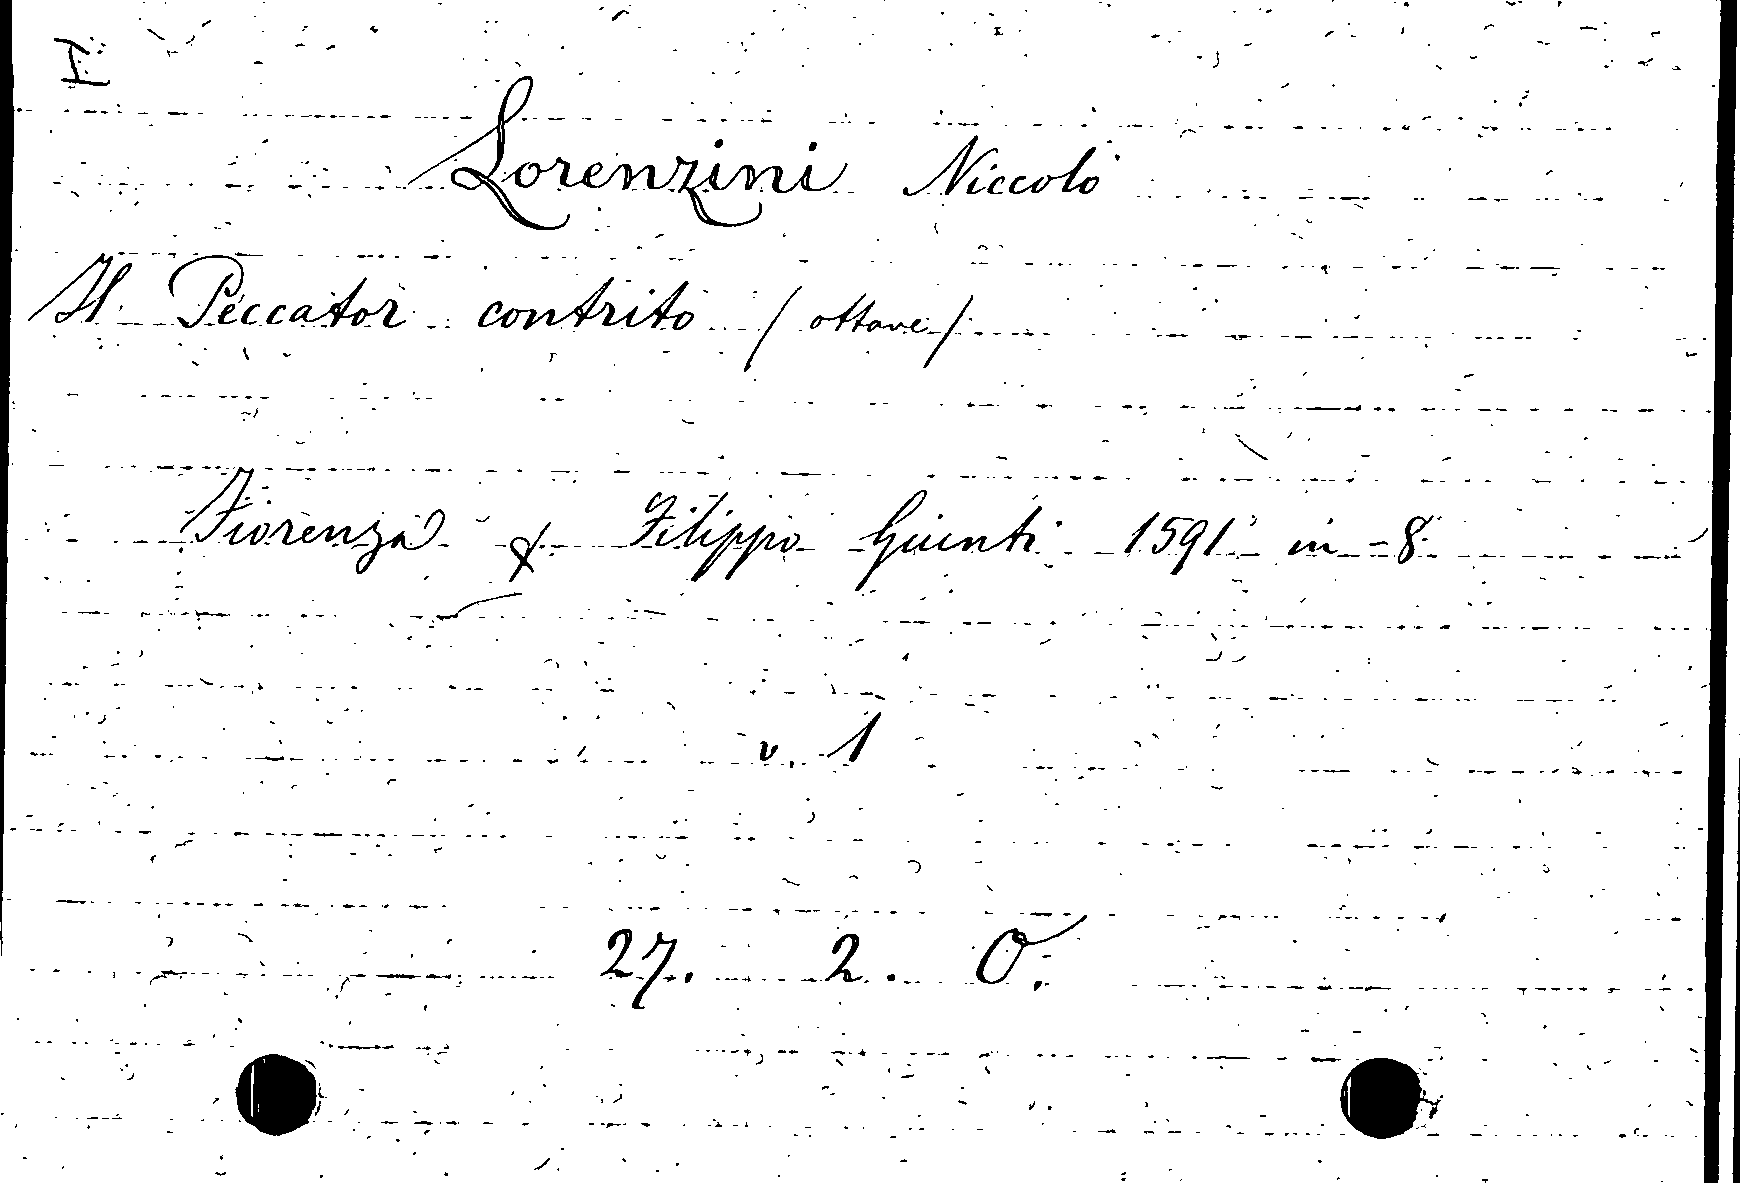 I
Lorenzini Niccolò
Il Peccator contrito (ottave)
Fiorenza f. Filippo Giunti 1591 in 8
v. 1
27. 2. O.